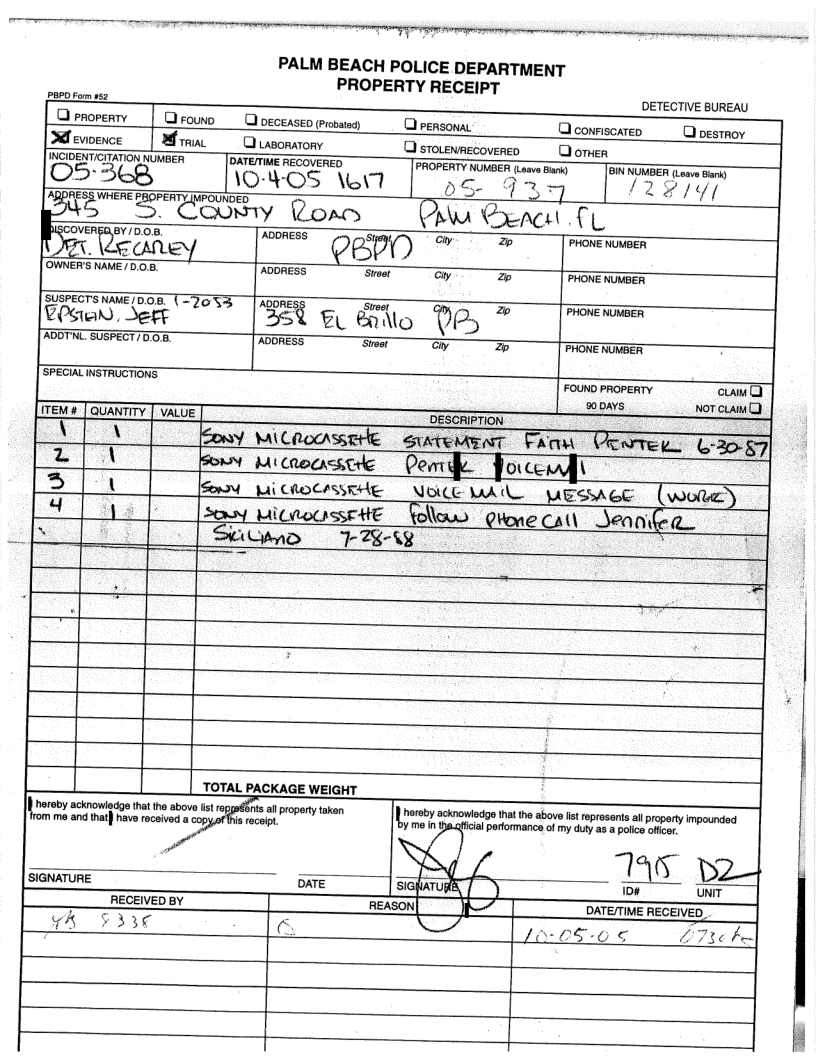 PALM BEACH POLICE DEPARTMENT
PROPERTY RECEIPT
PBPD Form #52
DETECTIVE BUREAU
PROPERTY FOUND DECEASED (Probated) PERSONAL CONFISCATED DESTROY
EVIDENCE TRIAL LABORATORY STOLEN/RECOVERED OTHER
INCIDENT/CITATION NUMBER DATE/TIME RECOVERED PROPERTY NUMBER (Leave Blank) BIN NUMBER (Leave Blank)
05-368 10-4-05 1617 05-937 128141
ADDRESS WHERE PROPERTY IMPOUNDED
345 S. COUNTY ROAD PALM BEACH, FL
DISCOVERED BY / D.O.B. ADDRESS Street City Zip PHONE NUMBER
DET. RECAREY PBPD
OWNER'S NAME / D.O.B. ADDRESS Street City Zip PHONE NUMBER
SUSPECT'S NAME / D.O.B. 1-2053 ADDRESS Street City Zip PHONE NUMBER
EPSTEIN, JEFF 358 EL Brillo PB
ADDT'NL. SUSPECT / D.O.B. ADDRESS Street City Zip PHONE NUMBER
SPECIAL INSTRUCTIONS
FOUND PROPERTY CLAIM
90 DAYS NOT CLAIM
ITEM # QUANTITY VALUE DESCRIPTION
1 1 SONY MICROCASSETTE STATEMENT FAITH PENTEK 6-30-87
2 1 SONY MICROCASSETTE PENTEK VOICEMAIL
3 1 SONY MICROCASSETTE VOICE MAIL MESSAGE (WORK)
4 1 SONY MICROCASSETTE Follow PHONE CALL Jennifer
SICILIANO 7-28-88
TOTAL PACKAGE WEIGHT
I hereby acknowledge that the above list represents all property taken
from me and that I have received a copy of this receipt.
I hereby acknowledge that the above list represents all property impounded
by me in the official performance of my duty as a police officer.
795 D2
SIGNATURE DATE SIGNATURE ID# UNIT
RECEIVED BY REASON DATE/TIME RECEIVED
8338 10-05-05